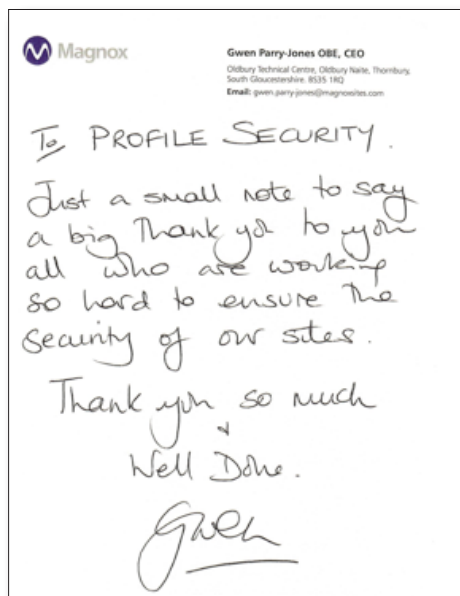 Magnox
Gwen Parry-Jones OBE, CEO
Oldbury Technical Centre, Oldbury Naite, Thornbury,
South Gloucestershire. BS35 1RQ
Email: gwen.parry-jones@magnoxsites.com
To PROFILE SECURITY.
Just a small note to say
a big Thank you to you
all who are working
so hard to ensure the
security of our sites.
Thank you so much
+
Well Done.
Gwen